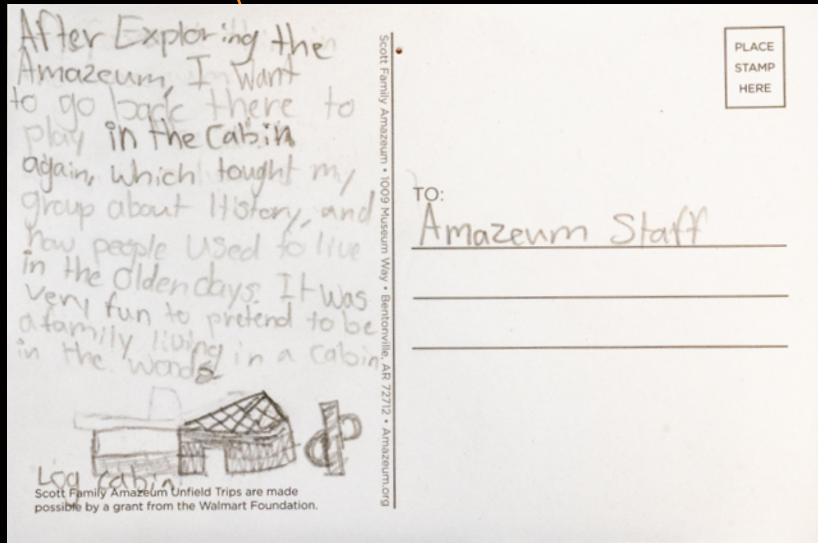 After Exploring the
Amazeum, I want
to go back there to
play in the cabin
again, which tought my
group about History, and
how people used to live
in the olden days. It was
very fun to pretend to be
a family living in a cabin
in the woods
Log cabin
Scott Family Amazeum Unfield Trips are made
possible by a grant from the Walmart Foundation.
Scott Family Amazeum • 1009 Museum Way • Bentonville, AR 72712 • Amazeum.org
PLACE
STAMP
HERE
TO:
Amazeum Staff